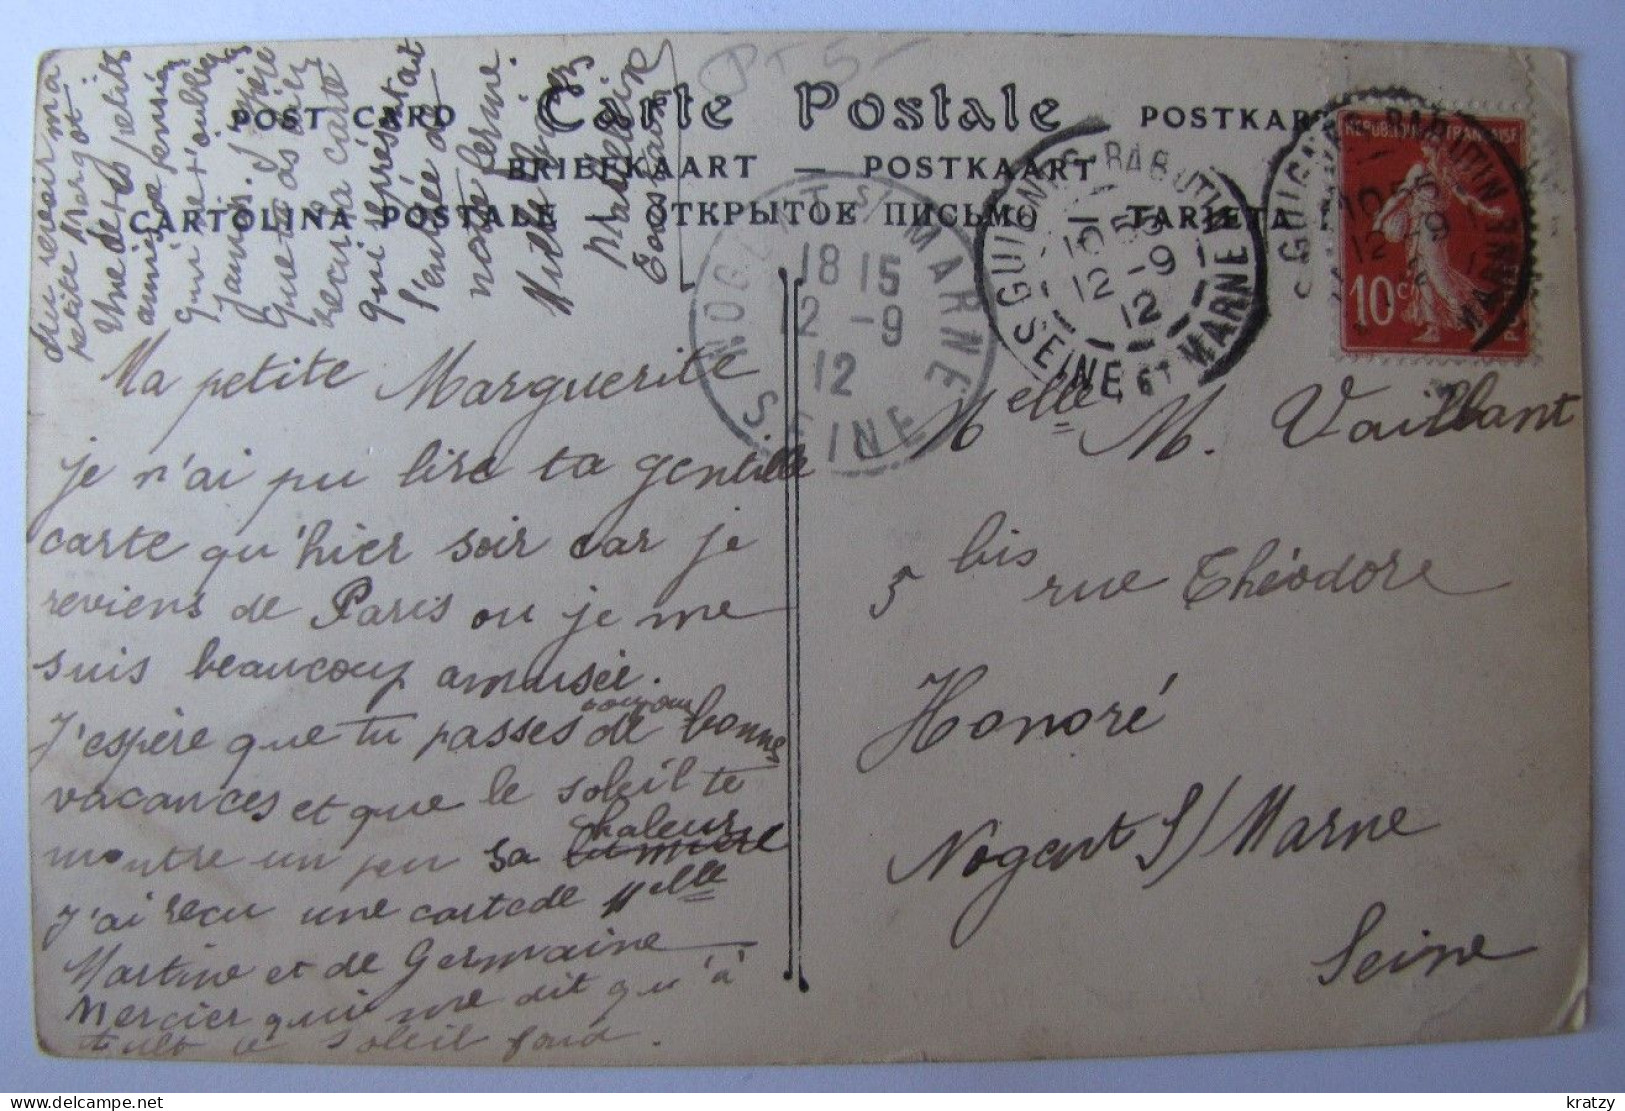 PT 5-
POST CARD Carte Postale POSTKAR
BRIEFKAART — POSTKAART
CARTOLINA POSTALE — ОТКРЫТОЕ ПИСЬМО — TARJETA
REPUBLIQUE FRANÇAISE
10c
GUIGNES-RABUTIN
10 55
12 -9
12
SEINE ET MARNE
GUIGNES-RABUTIN
10 55
12 -9
12
MARNE
NOGENT S MARNE
18 15
12 -9
12
SEINE
Ma petite Marguerite
je n'ai pu lire ta gentille
carte qu'hier soir car je
reviens de Paris ou je me
suis beaucoup amusée.
J'espère que tu passes toujours de bonnes
vacances et que le soleil te
montre un peu sa chaleur
J'ai reçu une carte de Melle
Martine et de Germaine
Mercier qui me dit qu'à
le soleil
Au revoir ma
petite Margot
Une de tes petites
amies
qui ne t'oublie
jamais. J'espère
que tu as bien
reçu ma carte
qui représentait
l'entrée de
notre ferme.
Mille
Madeleine
Melle M. Vaillant
5 bis rue Théodore
Honoré
Nogent S/ Marne
Seine
kratzy